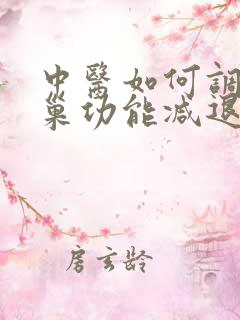 中醫如何調
巢功能減退
房玄齡